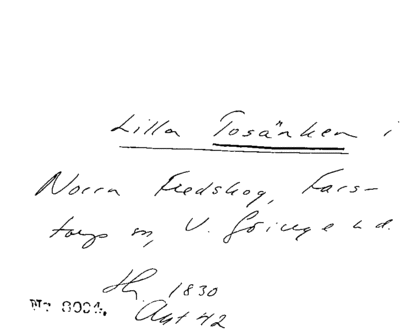 Lilla Tosänken i
Norra Fredskog, Fars-
torp sn, V. Göinge hd.
1830
Akt 42
Nr 8004.